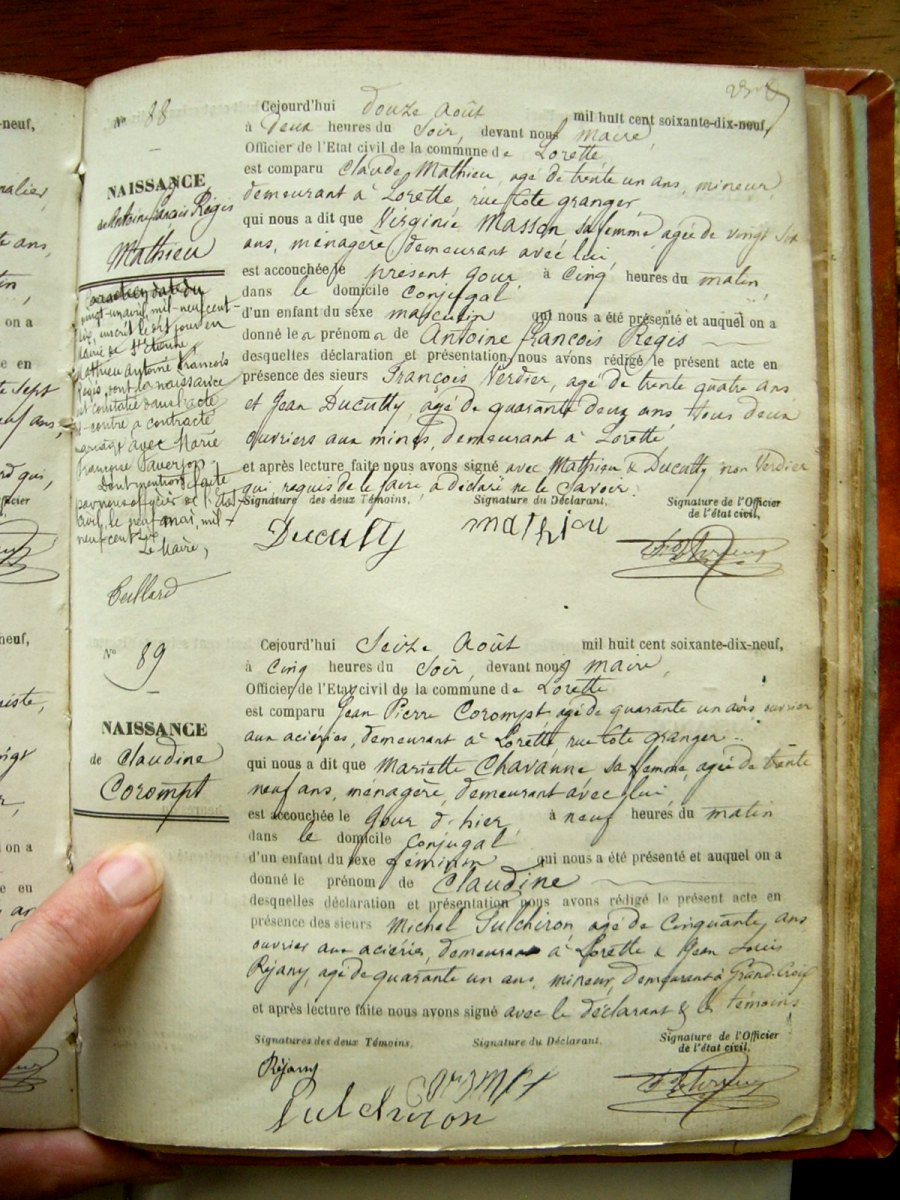 -neuf,
nalier,
te ans,
tin,
on a
e en
te sept
euf ans,
rd qui,
fficier
neuf,
niste,
ingt
on a
e eu
N° 88
NAISSANCE
de Antoine françois Régis
Mathieu
vingt-un avril, mil-neuf-cent-
dix, inscrit le dit jour en
mairie de St Etienne,
Mathieu Antoine François
Régis, dont la naissance
est constatée dans l'acte
ci-contre a contracté
mariage avec Marie
Françoise
Dont mention faite
par nous officier de l'état
civil le neuf mai, mil-
neuf cent dix
Le Maire,
Cejourd'hui douze Août mil huit cent soixante-dix-neuf,
à deux heures du Soir, devant nous maire,
Officier de l'Etat civil de la commune de Lorette
est comparu Claude Mathieu, agé de trente un ans, mineur,
demeurant à Lorette, rue Côte granger
qui nous a dit que Virginie Masson sa femme agée de vingt six
ans, ménagère, demeurant avec lui,
est accouchée le présent jour à cinq heures du matin,
dans le domicile conjugal
d'un enfant du sexe masculin qui nous a été présenté et auquel on a
donné les prénoms de Antoine françois Regis
desquelles déclaration et présentation nous avons rédigé le présent acte en
présence des sieurs François Verdier, agé de trente quatre ans
et Jean Ducutty, agé de quarante deux ans, tous deux
ouvriers aux mines, demeurant à Lorette
et après lecture faite nous avons signé avec Mathieu & Ducutty, non Verdier
qui, requis de le faire a déclaré ne le Savoir.
Signature des deux Témoins. Signature du Déclarant. Signature de l'Officier
de l'état civil,
Ducutty mathieu
N° 89
NAISSANCE
de Claudine
Corompt
Cejourd'hui Seize Août mil huit cent soixante-dix-neuf,
à Cinq heures du Soir, devant nous maire,
Officier de l'Etat civil de la commune de Lorette
est comparu Jean Pierre Corompt agé de quarante un ans ouvrier
aux aciéries, demeurant à Lorette, rue Côte granger
qui nous a dit que Mariette Chavanne, sa femme agée de trente
neuf ans, ménagère, demeurant avec lui
est accouchée le jour d'hier à neuf heures du matin
dans le domicile conjugal
d'un enfant du sexe féminin qui nous a été présenté et auquel on a
donné le prénom de Claudine
desquelles déclaration et présentation nous avons rédigé le présent acte en
présence des sieurs Michel Sulchiron agé de Cinquante ans
ouvrier aux aciéries, demeurant à Lorette & Jean Louis
Réjany, agé de quarante un ans, mineur, demeurant à Grand-Croix
et après lecture faite nous avons signé avec le déclarant & les témoins
Signatures des deux Témoins. Signature du Déclarant. Signature de l'Officier
de l'état civil,
Réjany Corompt
Sulchiron